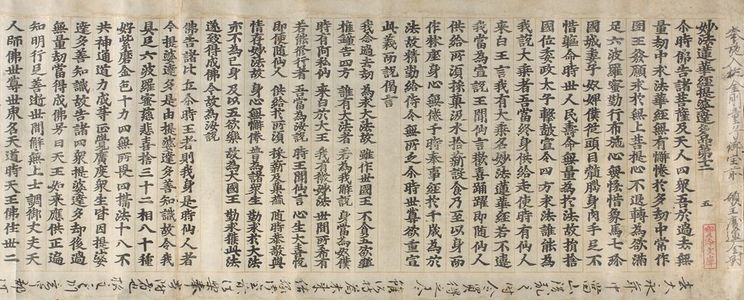 妙法蓮華經提婆達多品第十二 五
尒時佛告諸菩薩及天人四衆吾於過去無
量劫中求法華經無有懈惓於多劫中常作
國王發願求於無上菩提心不退轉為欲滿
足六波羅蜜勤行布施心無悋惜象馬七珎
國城妻子奴婢僕從頭目髓腦身肉手足不
惜軀命時世人民壽命無量為於法故捐捨
國位委政太子擊鼓宣令四方求法誰能為
我說大乘者吾當終身供給走使時有仙人
來白王言我有大乘名妙法蓮華經若不違
我當為宣說王聞仙言歡喜踊躍即隨仙人
供給所須採菓汲水拾薪設食乃至以身而
作牀座身心無惓于時奉事經於千歲為於
法故精勤給侍令無所乏尒時世尊欲重宣
此義而說偈言
我念過去劫 為求大法故 雖作世國王 不貪五欲樂
搥鐘告四方 誰有大法者 若為我解說 身當為奴僕
時有阿私仙 來白於大王 我有微妙法 世間所希有
若能修行者 吾當為汝說 時王聞仙言 心生大喜悅
即便隨仙人 供給於所須 採薪及菓蓏 隨時恭敬與
情存妙法故 身心無懈惓 普為諸衆生 勤求於大法
亦不為己身 及以五欲樂 故為大國王 勤求獲此法
遂致得成佛 今故為汝說
佛告諸比丘尒時王者則我身是時仙人者
今提婆達多是由提婆達多善知識故令我
具足六波羅蜜慈悲喜捨三十二相八十種
好紫磨金色十力四無所畏四攝法十八不
共神通道力成等正覺廣度衆生皆因提婆
達多善知識故告諸四衆提婆達多却後過
無量劫當得成佛号曰天王如來應供正遍
知明行足善逝世間解無上士調御丈夫天
人師佛世尊世界名天道時天王佛住世二